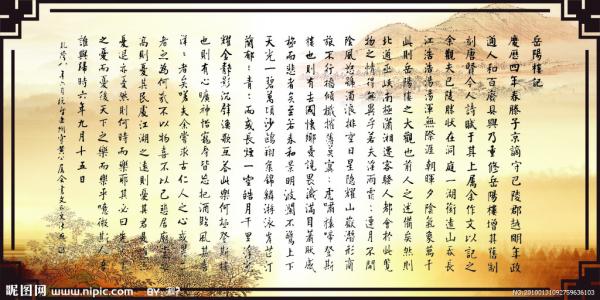 岳陽樓記
慶曆四年春滕子京謫守巴陵郡越明年政
通人和百廢具興乃重修岳陽樓增其舊制
刻唐賢今人詩賦于其上屬余作文以記之
余觀夫巴陵勝狀在洞庭一湖銜遠山吞長
江浩浩湯湯橫無際涯朝暉夕陰氣象萬千
此則岳陽樓之大觀也前人之述備矣然則
北通巫峽南極瀟湘遷客騷人都會於此覽
物之情得無異乎若夫淫雨霏霏連月不開
陰風怒號濁浪排空日星隱耀山嶽潛形商
旅不行檣傾楫摧薄暮冥冥虎嘯猿啼登斯
樓也則有去國懷鄉憂讒畏譏滿目蕭然感
極而悲者矣至若春和景明波瀾不驚上下
天光一碧萬頃沙鷗翔集錦鱗游泳岸芷汀
蘭郁:青:而或長煙一空皓月千里浮光
耀金靜影沉璧漁歌互答此樂何極登斯樓
也則有心曠神怡寵辱皆忘把酒臨風其喜
洋:者矣嗟夫余嘗求古仁人之心或異二
者之為何哉不以物喜不以己悲居廟堂之
高則憂其民處江湖之遠則憂其君是進亦
憂退亦憂然則何時而樂耶其必曰先天下之
憂而憂後天下之樂而樂乎噫微斯人吾
誰與歸時六年九月十五日
昵图网 www.nipic.com
NO:20100131092759636103